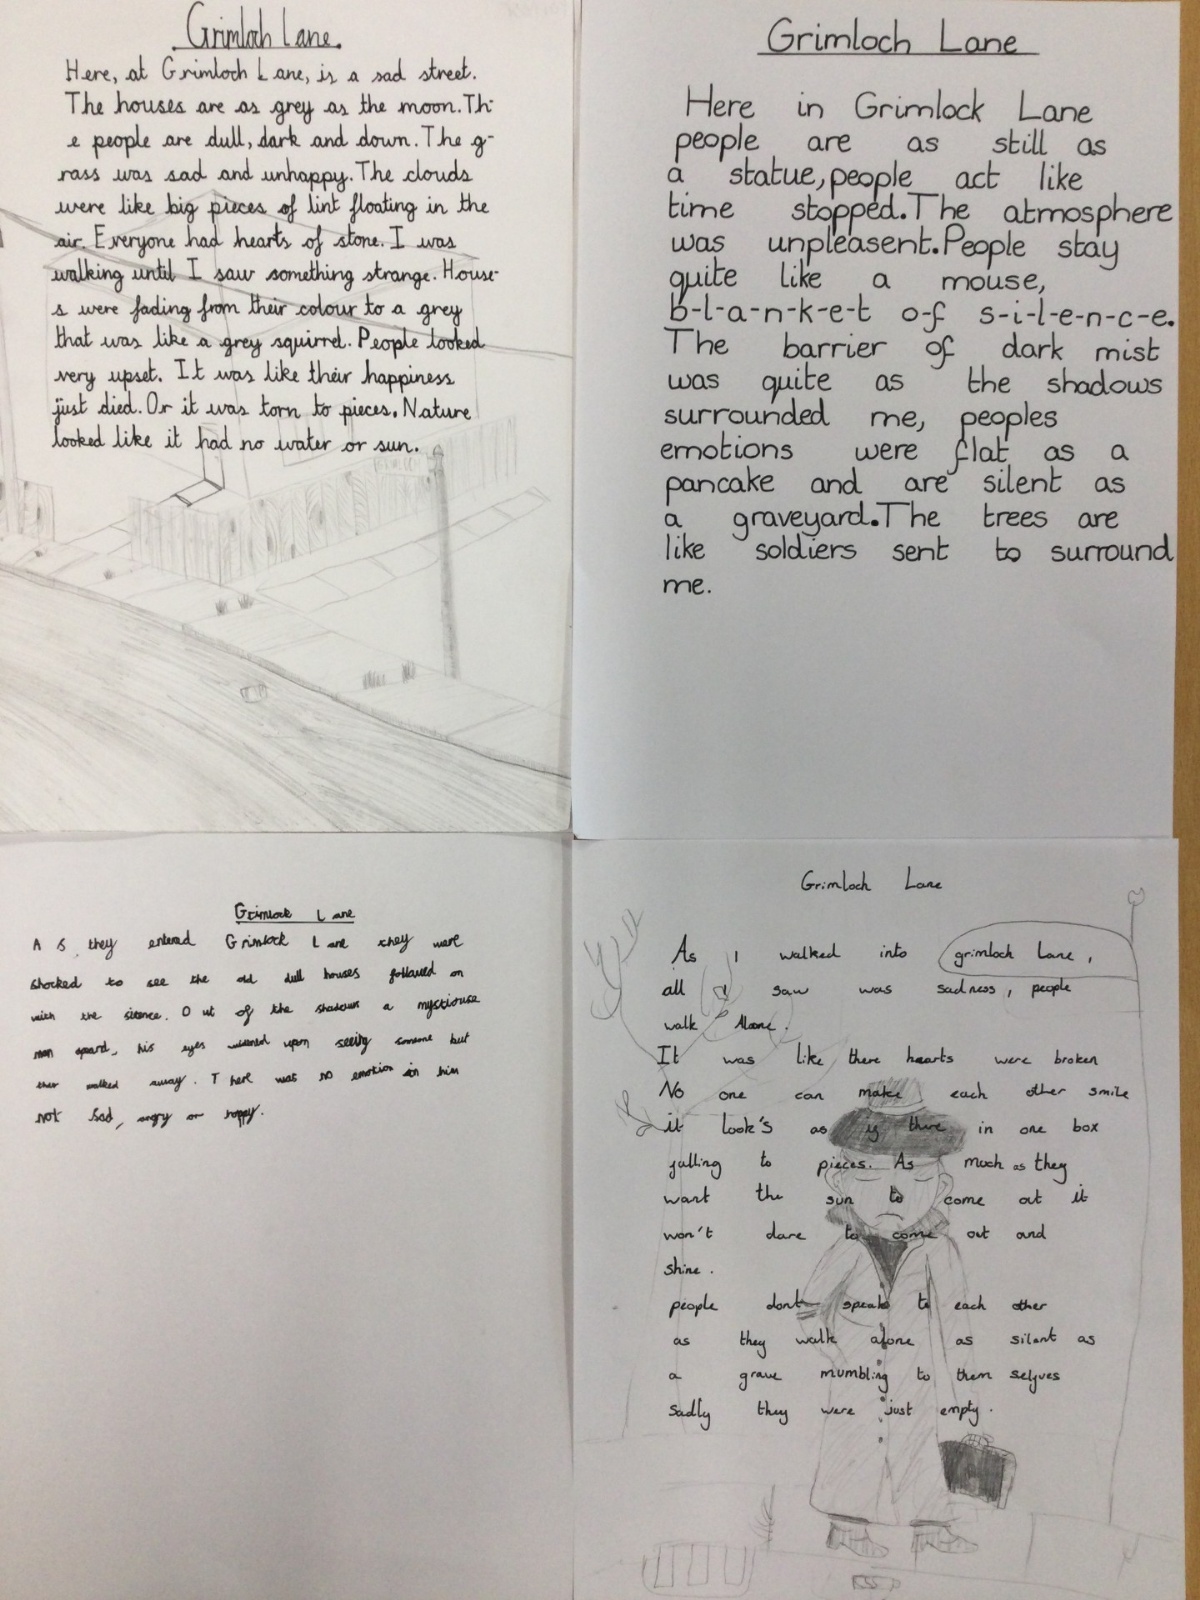 Grimloch Lane.
Here, at Grimloch Lane, is a sad street.
The houses are as grey as the moon. Th-
e people are dull, dark and down. The g-
rass was sad and unhappy. The clouds
were like big pieces of lint floating in the
air. Everyone had hearts of stone. I was
walking until I saw something strange. House-
s were fading from their colour to a grey
that was like a grey squirrel. People looked
very upset. It was like their happiness
just died. Or it was torn to pieces. Nature
looked like it had no water or sun.
Grimloch Lane
Here in Grimlock Lane
people are as still as
a statue, people act like
time stopped. The atmosphere
was unpleasent. People stay
quite like a mouse,
b-l-a-n-k-e-t o-f s-i-l-e-n-c-e.
The barrier of dark mist
was quite as the shadows
surrounded me, peoples
emotions were flat as a
pancake and are silent as
a graveyard. The trees are
like soldiers sent to surround
me.
Grimlock Lane
As they entered Grimlock Lane they were
shocked to see the old dull houses followed on
with the silence. Out of the shadows a mystiouse
man apeard, his eyes upon seeing someone but
walked away. There was no emotion in him
not sad, angry or happy.
Grimloch Lane
As I walked into grimloch Lane,
all I saw was sadness, people
walk Alone.
It was like there hearts were broken
No one can make each other smile
it look's as if there in one box
falling to pieces. As much as they
want the sun to come out it
won't dare to come out and
shine.
people dont speak to each other
as they walk alone as silent as
a grave mumbling to them selfves
sadly they were just empty.